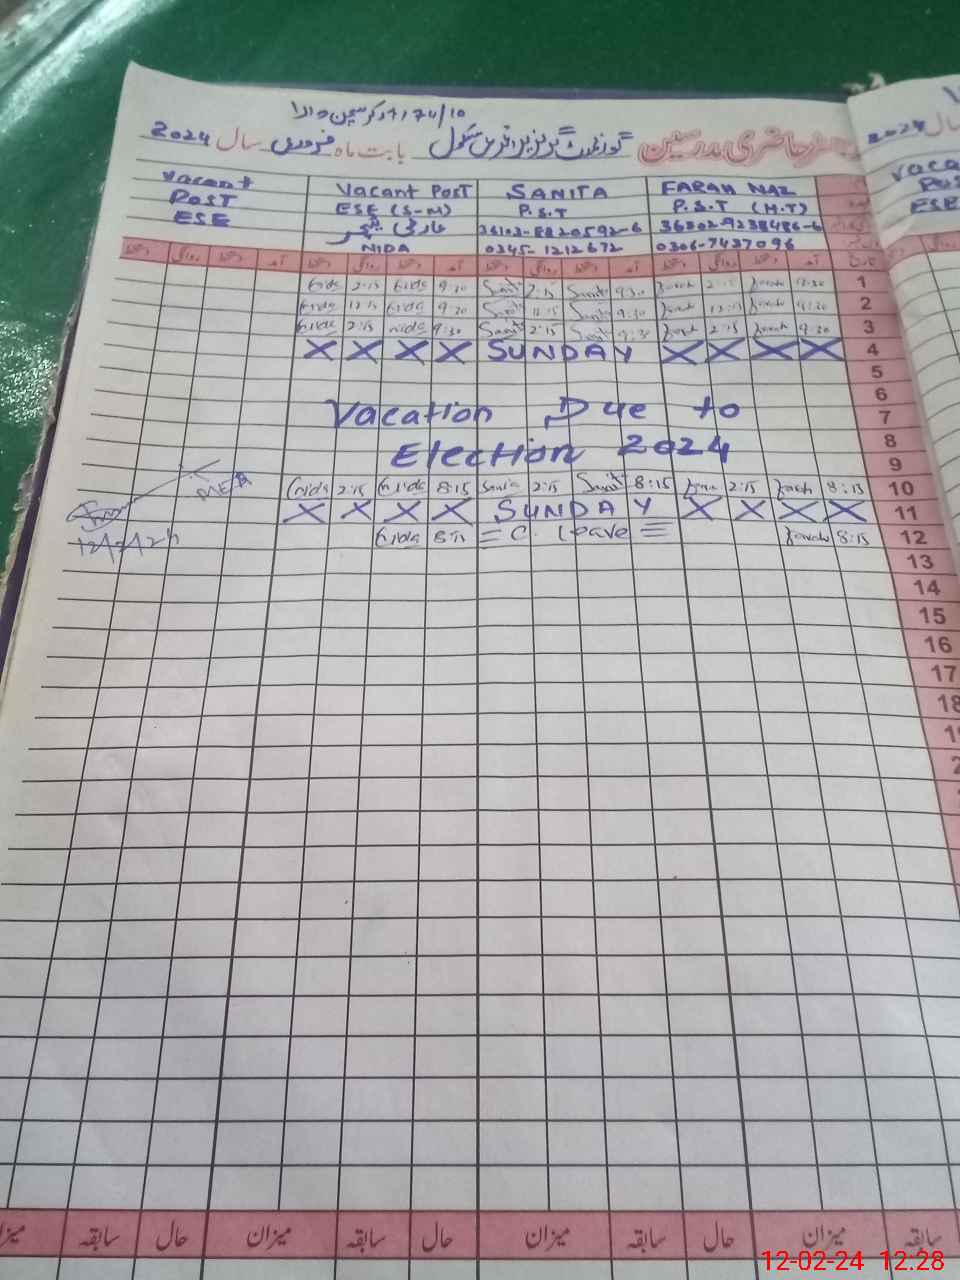 2024 سال فروری بابت ماہ گورنمنٹ گرلز پرائمری سکول حاضری مدرسین
Vacant Vacant Post SANITA FARAH NAZ
Post ESE (S-M) P.S.T P.S.T (H.T)
ESE عارضی ٹیچر 36103-8820592-6 36302-9238486-6
NIDA 0345-1212672 0306-7437096
دستخط روانگی دستخط آمد دستخط روانگی دستخط آمد دستخط روانگی دستخط آمد دستخط روانگی دستخط آمد تاریخ
Nida 2:15 Nida 9:30 Sanita 2:15 Sanita 9:30 Farah 2:15 Farah 1
Nida 12:15 Nida 9:30 Sanita 12:15 Sanita 9:30 Farah 12:15 Farah 9:30 2
Nida 2:15 Nida 9:30 Sanita 2:15 Sanita 9:30 Farah 2:15 Farah 9:30 3
X X X X SUNDAY X X X X 4
5
6
Vacation Due to 7
8
Election 2024 9
MEA Nida 2:15 Nida 8:15 Sanita 2:15 Sanita 8:15 Farah 2:15 Farah 8:15 10
X X X X SUNDAY X X X X 11
Nida 8:15 = C. leave = Farah 8:15 12
13
14
15
16
17
18
میزان سابقہ حال میزان سابقہ حال میزان سابقہ حال میزان سابقہ
12-02-24 12:28